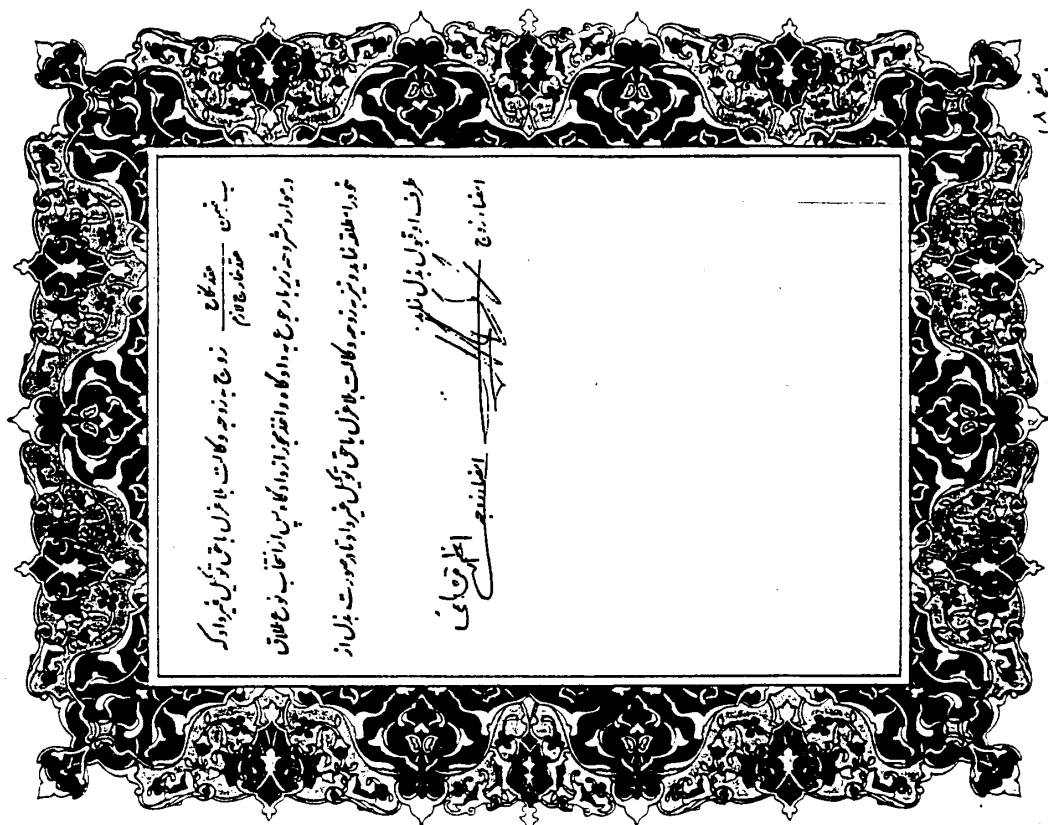 ب - ضمن عقد نکاح / عقد خارج لازم زوج به زوجه وکالت بلاعزل با حق توکیل غیر داد که
در موارد مشروحه زیر با رجوع به دادگاه و اخذ مجوز از دادگاه پس از انتخاب نوع طلاق
خود را مطلقه نماید و نیز به زوجه وکالت بلاعزل با حق توکیل غیر داد تا در صورت بذل از
طرف او قبول بذل نماید.
امضاء زوج امضاء زوجه
صفحه ۸